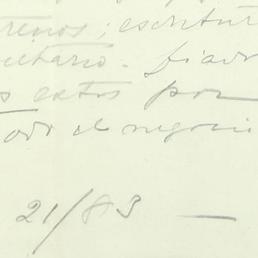 renos; escritur
cretario - fiado
s estos por
odo el negocio
21/83 —